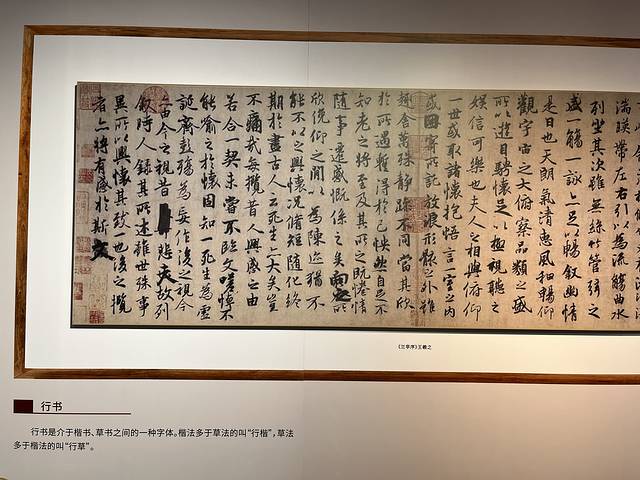 湍暎帶左右引以為流觴曲水
列坐其次雖無絲竹管弦之
盛一觴一詠亦足以暢敘幽情
是日也天朗氣清惠風和暢仰
觀宇宙之大俯察品類之盛
所以遊目騁懷足以極視聽之
娛信可樂也夫人之相與俯仰
一世或取諸懷抱悟言一室之內
或因寄所託放浪形骸之外雖
趣舍萬殊靜躁不同當其欣
於所遇暫得於己快然自足不
知老之將至及其所之既惓情
隨事遷感慨係之矣向之所
欣俛仰之閒以為陳迹猶不
能不以之興懷況脩短隨化終
期於盡古人云死生亦大矣豈
不痛哉每攬昔人興感之由
若合一契未嘗不臨文嗟悼不
能喻之於懷固知一死生為虛
誕齊彭殤為妄作後之視今
亦由今之視昔悲夫故列
敘時人錄其所述雖世殊事
異所以興懷其致一也後之攬
者亦將有感於斯文
《兰亭序》王羲之
行书
行书是介于楷书、草书之间的一种字体。楷法多于草法的叫“行楷”，草法
多于楷法的叫“行草”。